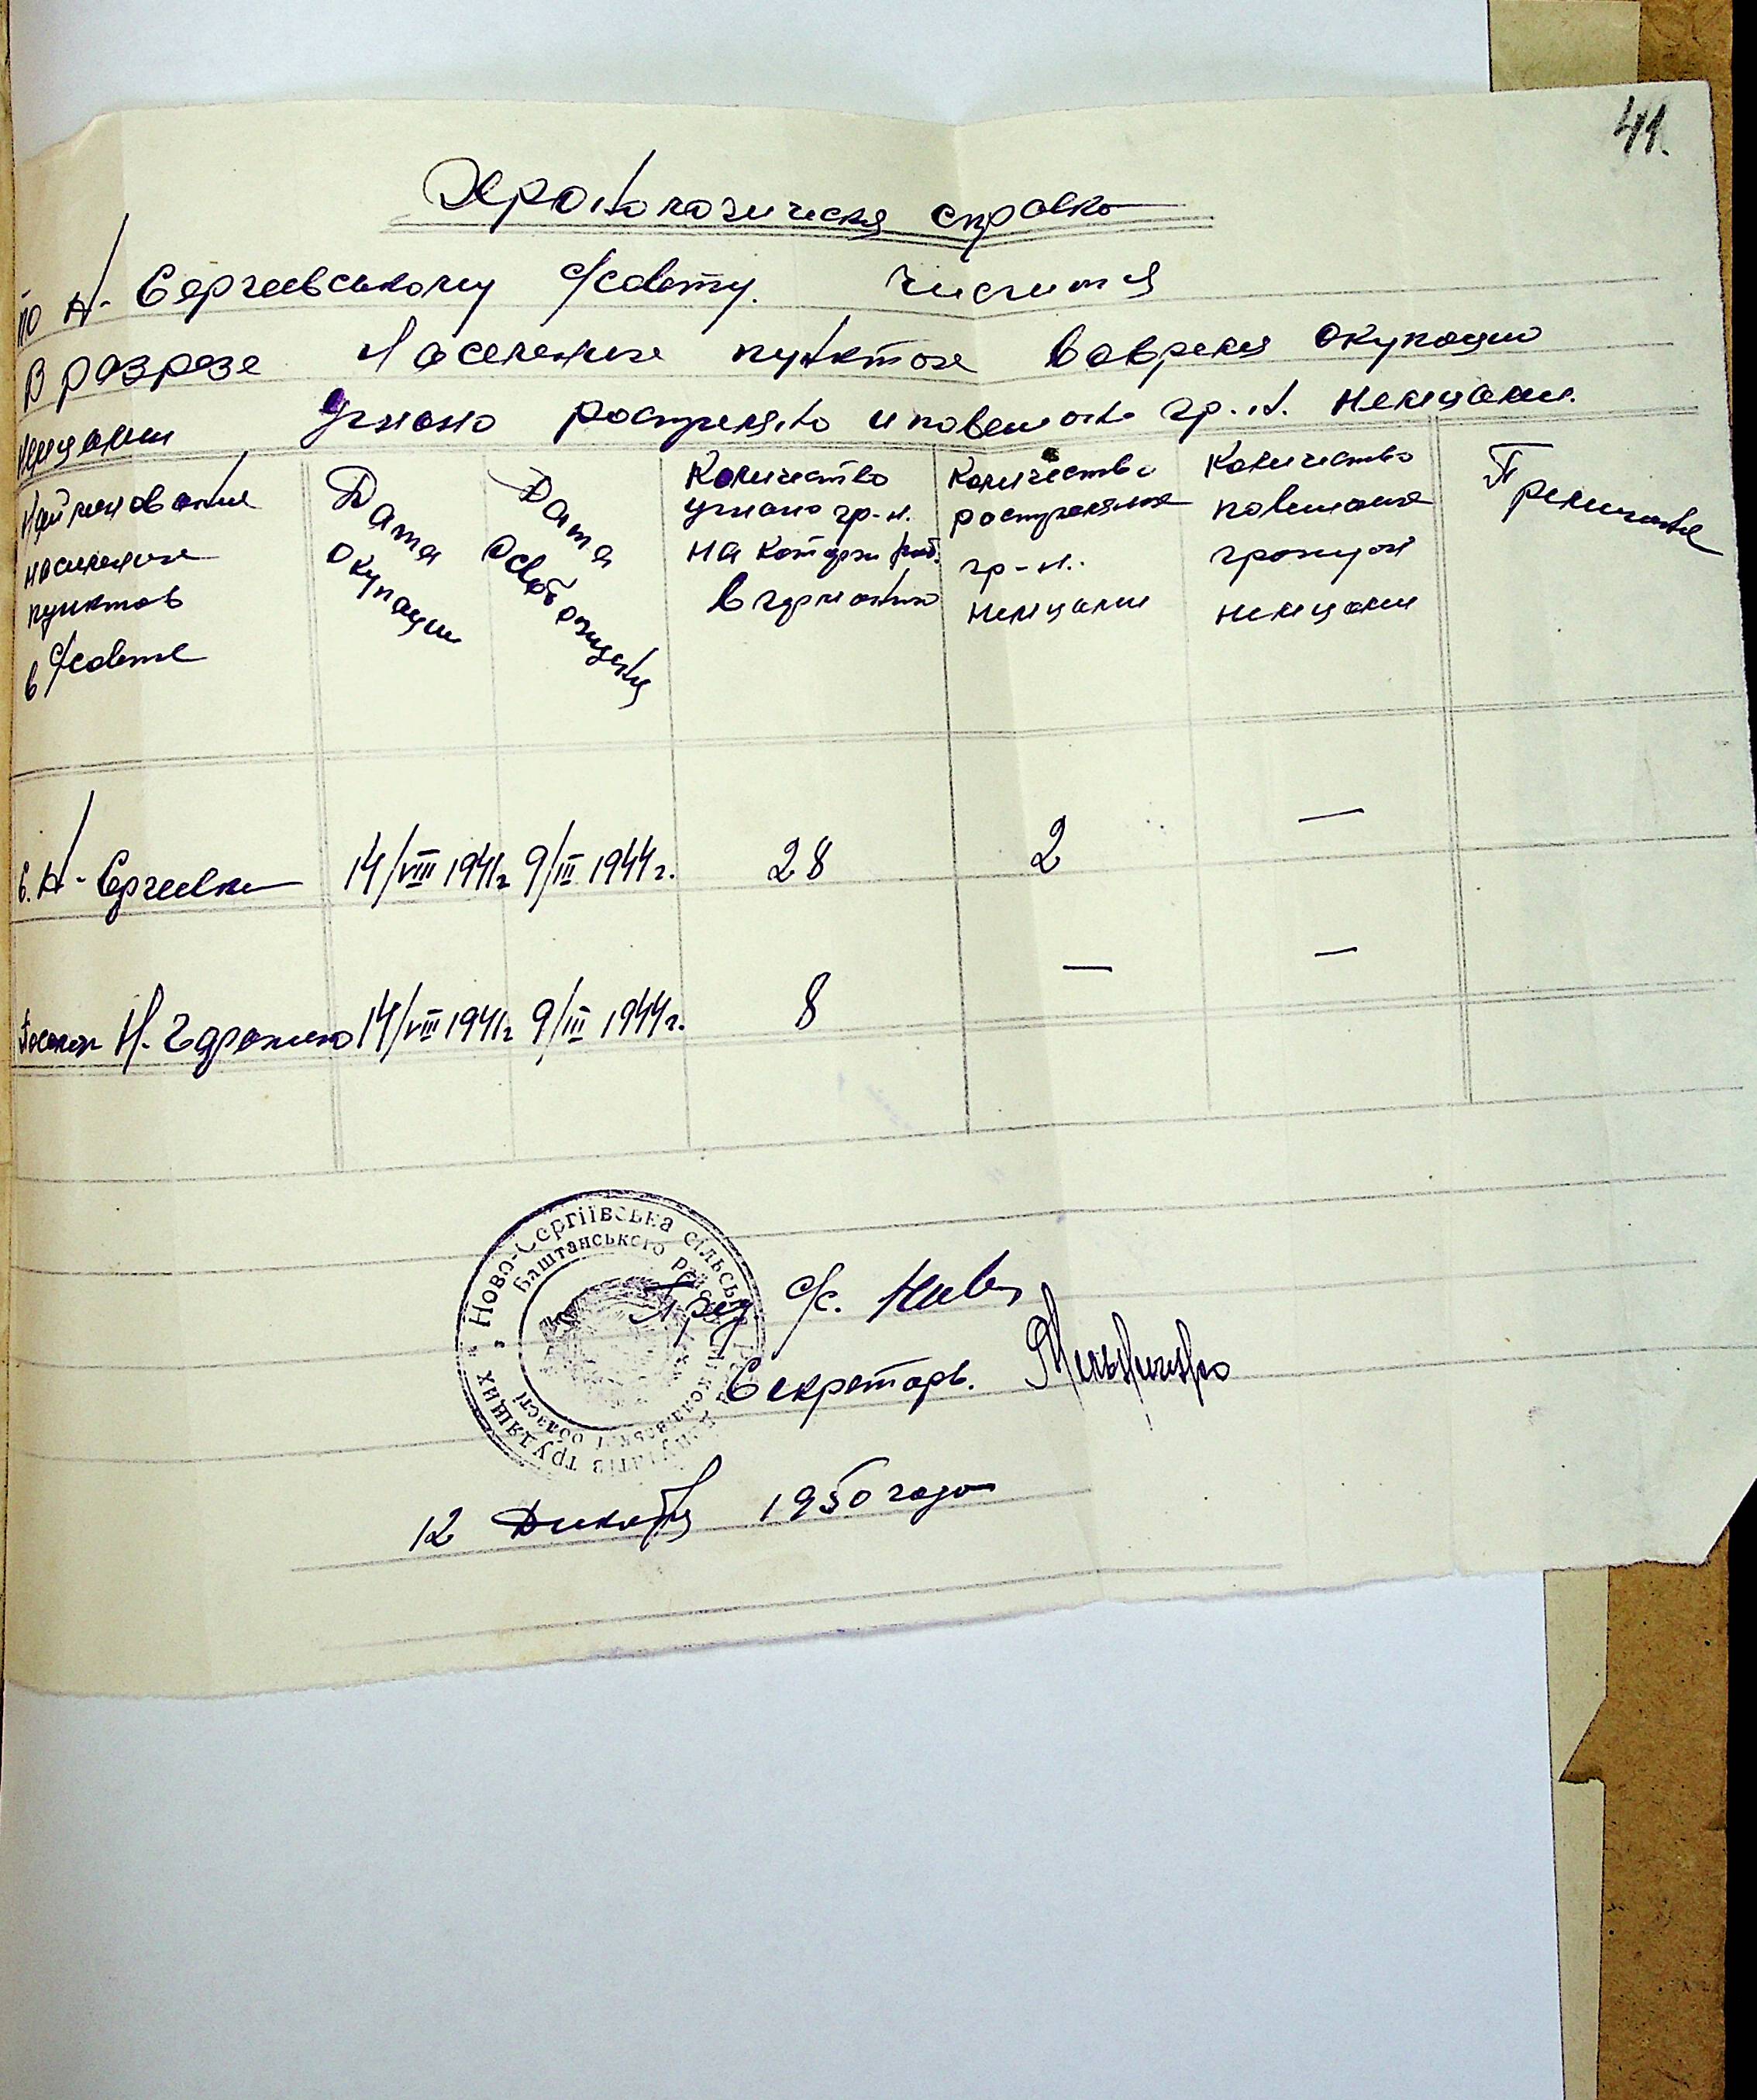 41.
Хронологическя справка
по Н-Сергеевському с/совету. числится
В розрезе Населеных пунктов вовремя окупации
немцами Угнано ростреляно и повешано гр.-н. Немцами.
Наименование населеных пунктов в с/совете
Дата окупации
Дата Освобождения
Количество угнано гр-н. на каторжн. раб. в германию
Количество ростреляных гр-н. немцами
Количество повешаных граждан немцами
Примичание
с. Н-Сергеевка 14/VIII 1941г 9/III 1944г. 28 2 —
Поселок Н. 14/VIII 1941г 9/III 1944г. 8 — —
Ново-Сергіївська сільська Рада депутатів трудящих
Баштанського району Миколаївської області
Пред с/с.
Секретарь.
12 Декабря 1950 года